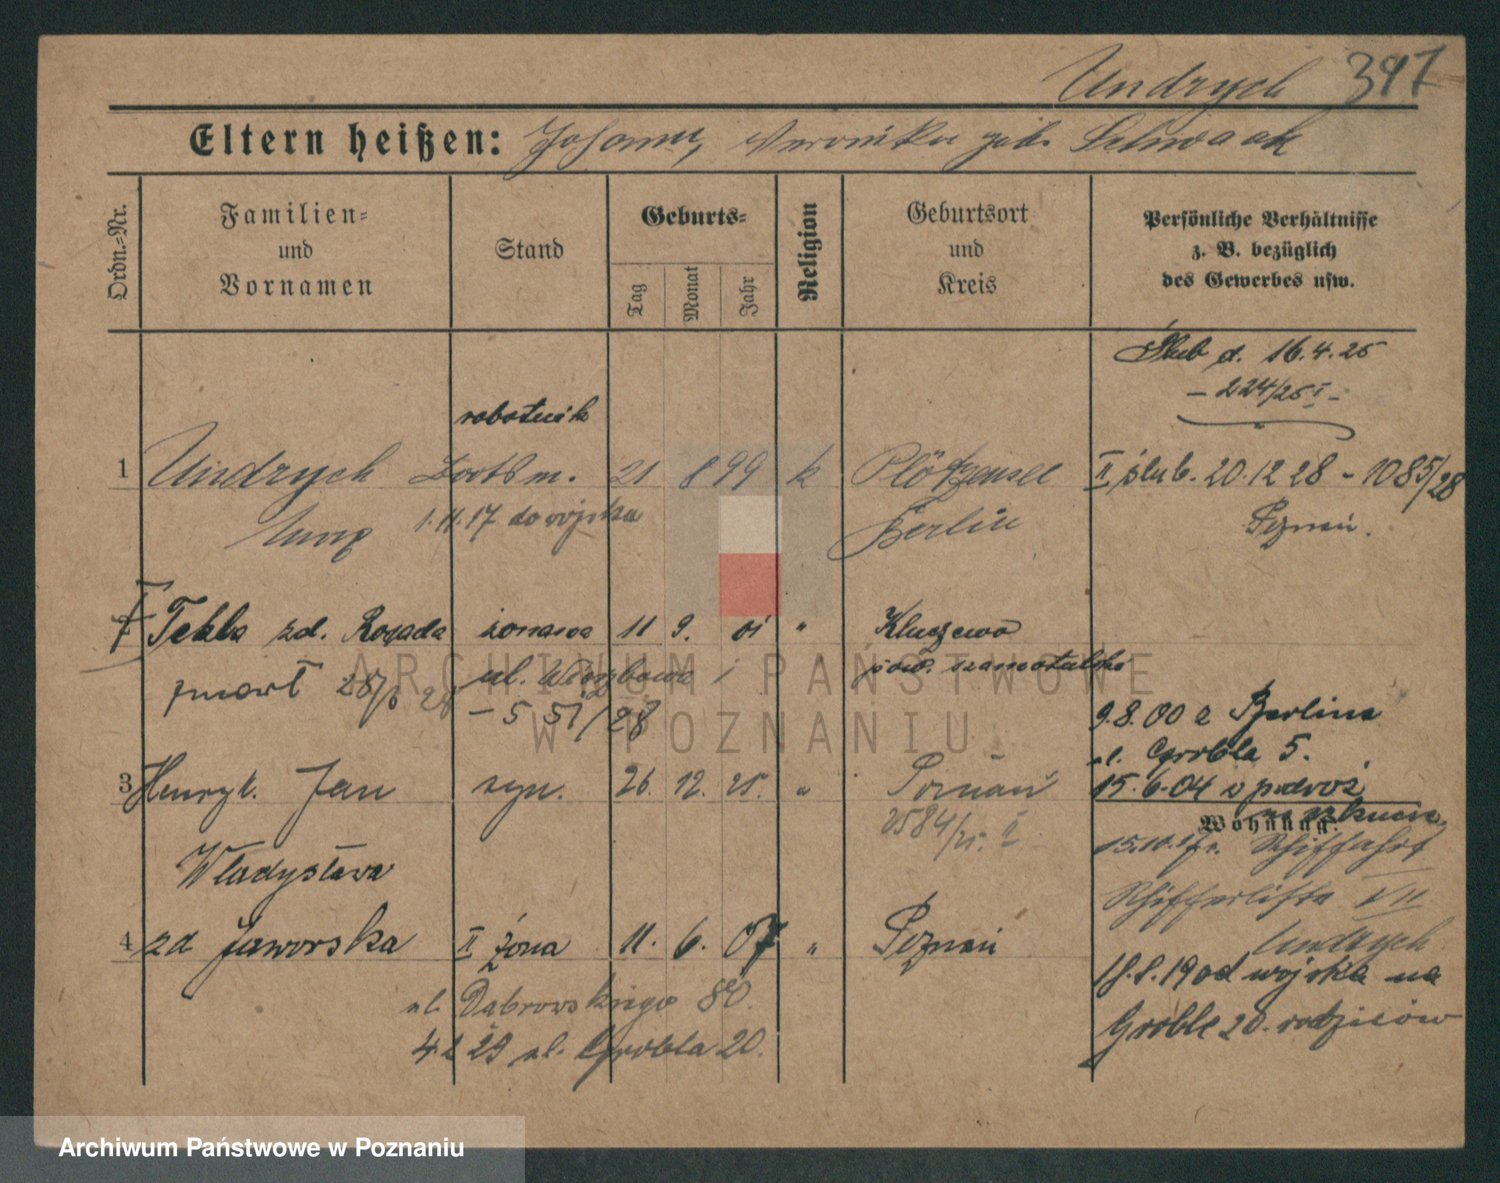 Undrych 397
Eltern heißen: Johann, Veronika geb. Schwaak
Ordn.=Nr.
Familien=
und
Vornamen
Stand
Geburts=
Tag
Monat
Jahr
Religion
Geburtsort
und
Kreis
Persönliche Verhältnisse
z. B. bezüglich
des Gewerbes usw.
Ślub d. 16.4.25
– 224/25 I –
robotnik
1 Undrych Bootsm. 21 8 99 k Plötzensee II ślub. 20.12 28 – 1085/28
1.11.17 do wojska Berlin Poznań.
I Tekla zd. Rogada żonata 11 9. 01 " Kluczewo
zmarł 28/6 28 ul. Wierzbowa pow. szamotulski
– 5 51/28
9.8.00 z Berlina
ul. Grobla 5.
3 Henryk Jan syn. 26. 12. 25. " Poznań 15.6.04 w podróż
2584/25. II
Wohnung:
15.10.17 Schiffahrt
Władysława
Schifferliste VII
Undrych
4 zd Jaworska II żona 11. 6. 07 " Poznań
18.8.19 od wojska na
ul. Dąbrowskiego 80.
Groble 20. rodziców
4 2 29 ul. Grobla 20.
ARCHIWUM PAŃSTWOWE
W POZNANIU
Archiwum Państwowe w Poznaniu